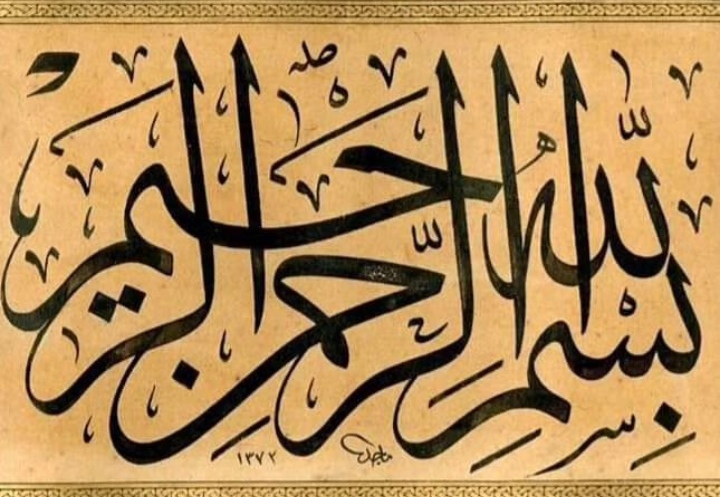 بِسْمِ اللهِ الرَّحْمٰنِ الرَّحِيمِ
١٣٧٢